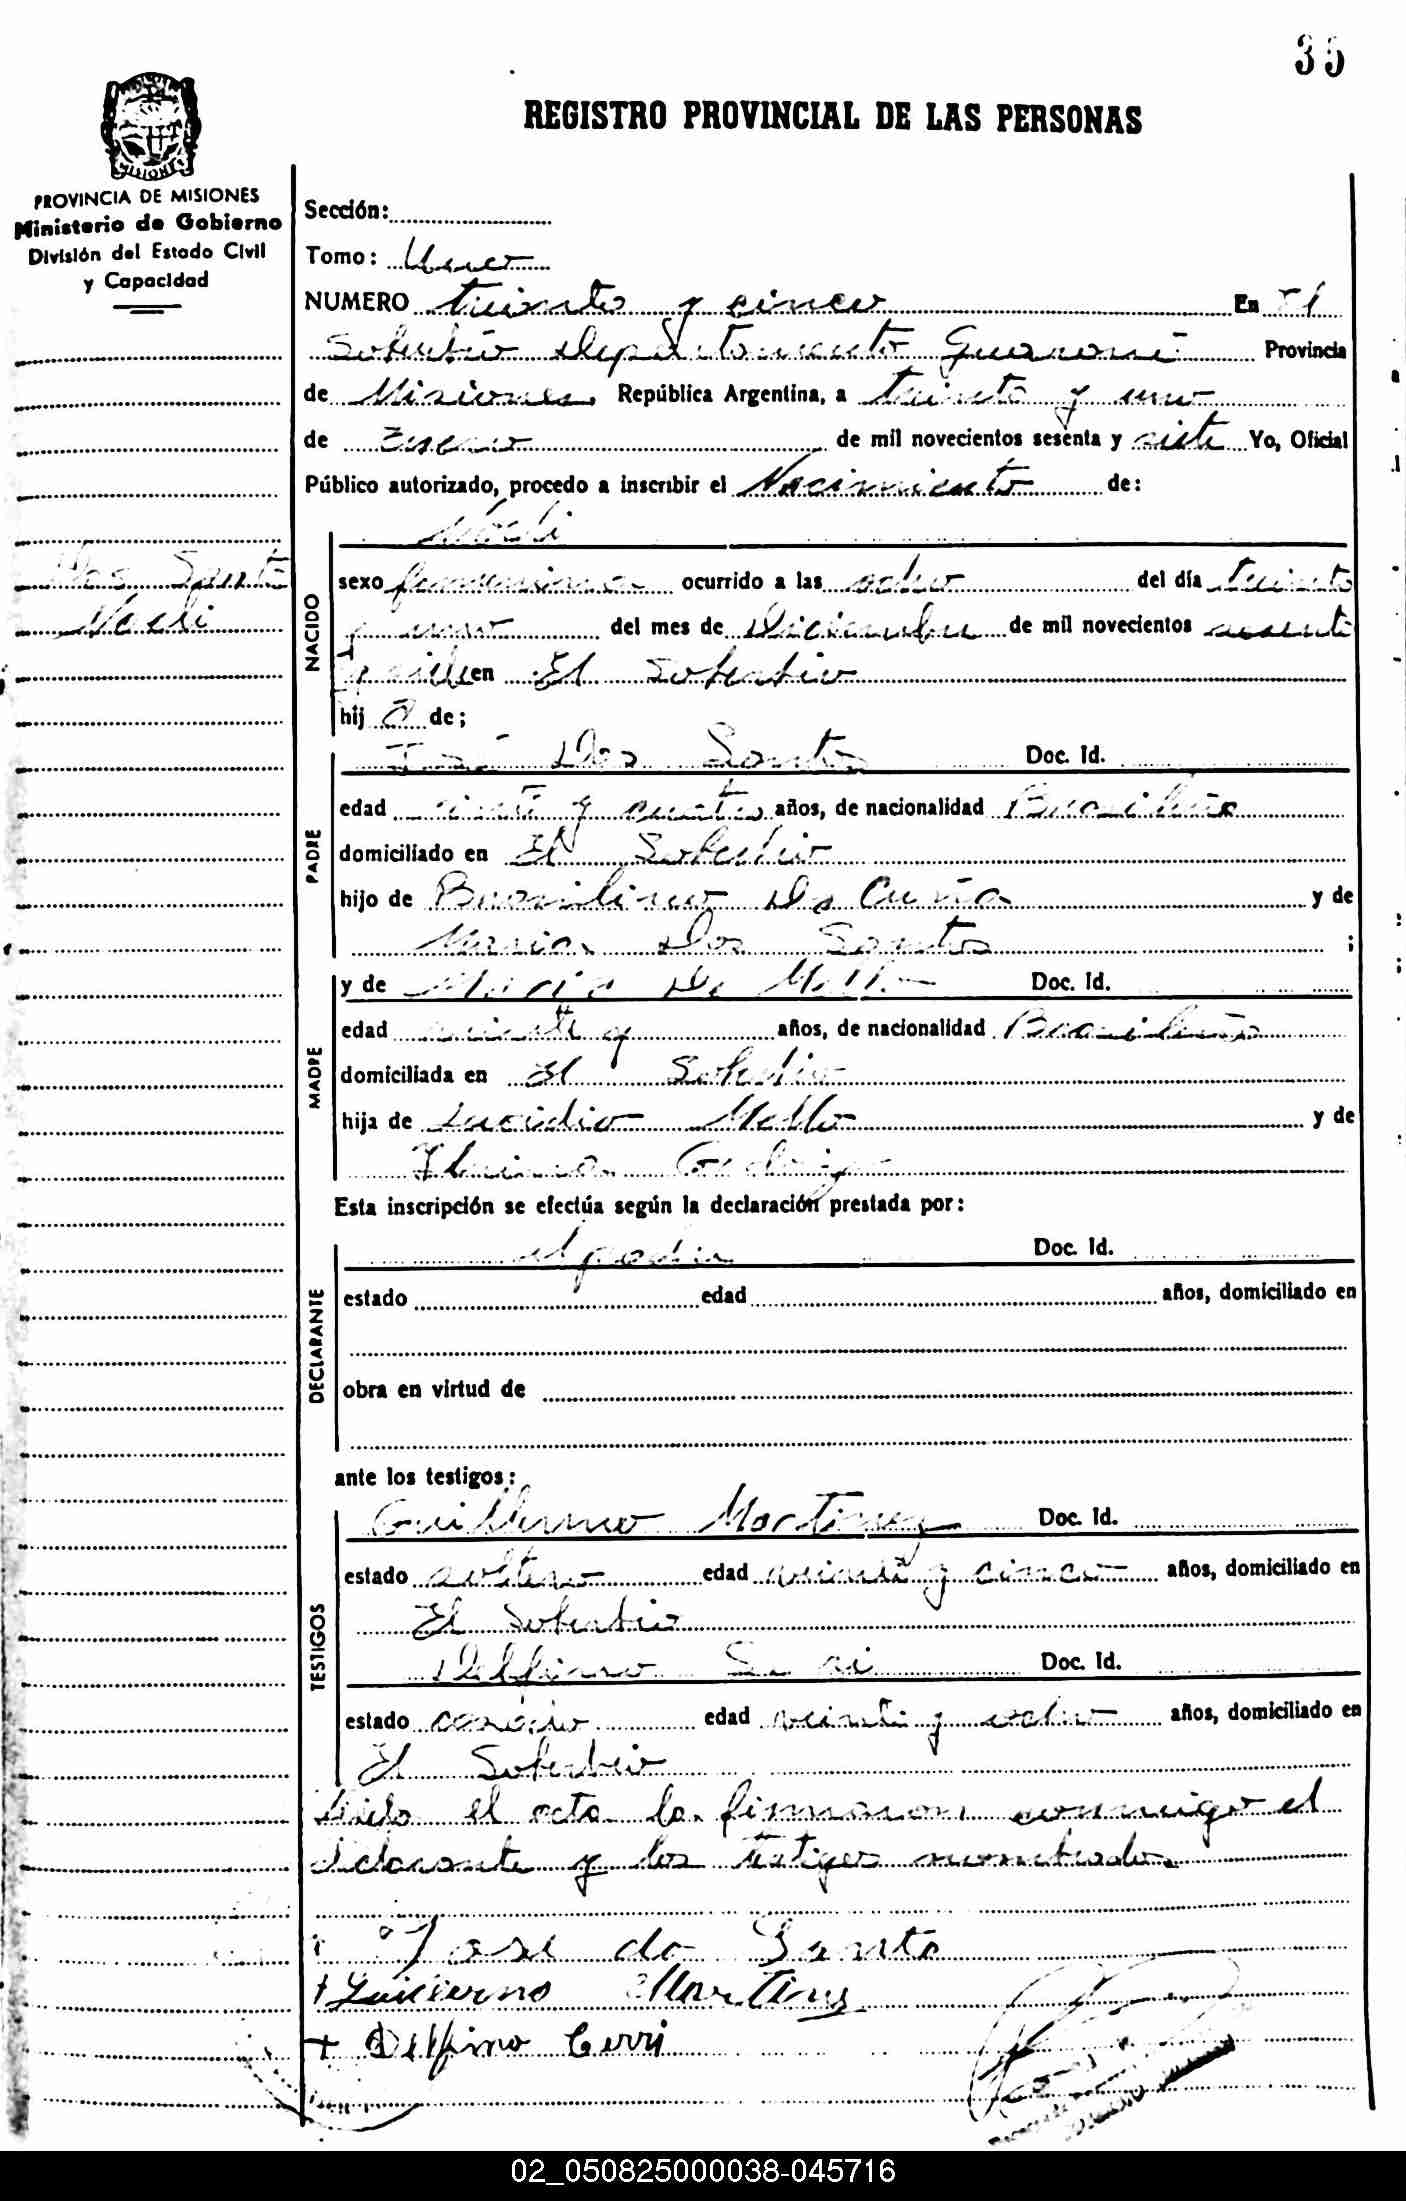 35
REGISTRO PROVINCIAL DE LAS PERSONAS
MISIONES
PROVINCIA DE MISIONES
Ministerio de Gobierno
División del Estado Civil
y Capacidad
Sección:
Tomo: Uno
NUMERO treinta y cinco En El
Soberbio Departamento Guaraní Provincia
de Misiones República Argentina, a treinta y uno
de Enero de mil novecientos sesenta y siete Yo, Oficial
Público autorizado, procedo a inscribir el Nacimiento de:
Dos Santo
NACIDO
sexo femenino ocurrido a las ocho del día treinta
y uno del mes de Diciembre de mil novecientos sesenta
y en El Soberbio
hij a de;
PADRE
José Dos Santo Doc. Id.
edad veinte y cuatro años, de nacionalidad Brasileño
domiciliado en El Soberbio
hijo de Brasilino Da Cuña y de
Maria Dos Santos ;
MADRE
y de María De Mello Doc. Id.
edad veinte y años, de nacionalidad Brasileña
domiciliada en El Soberbio
hija de Lucidio Mello y de
Esta inscripción se efectúa según la declaración prestada por:
DECLARANTE
el padre Doc. Id.
estado edad años, domiciliado en
obra en virtud de
ante los testigos:
TESTIGOS
Guillermo Martinez Doc. Id.
estado soltero edad veinte y cinco años, domiciliado en
El Soberbio
Delfino Doc. Id.
estado casado edad veinte y ocho años, domiciliado en
El Soberbio
Leído el acta la firmaron conmigo el
declarante y los testigos nombrados.
José do Santo
+ Martins
+ Delfino Cerri
02_050825000038-045716